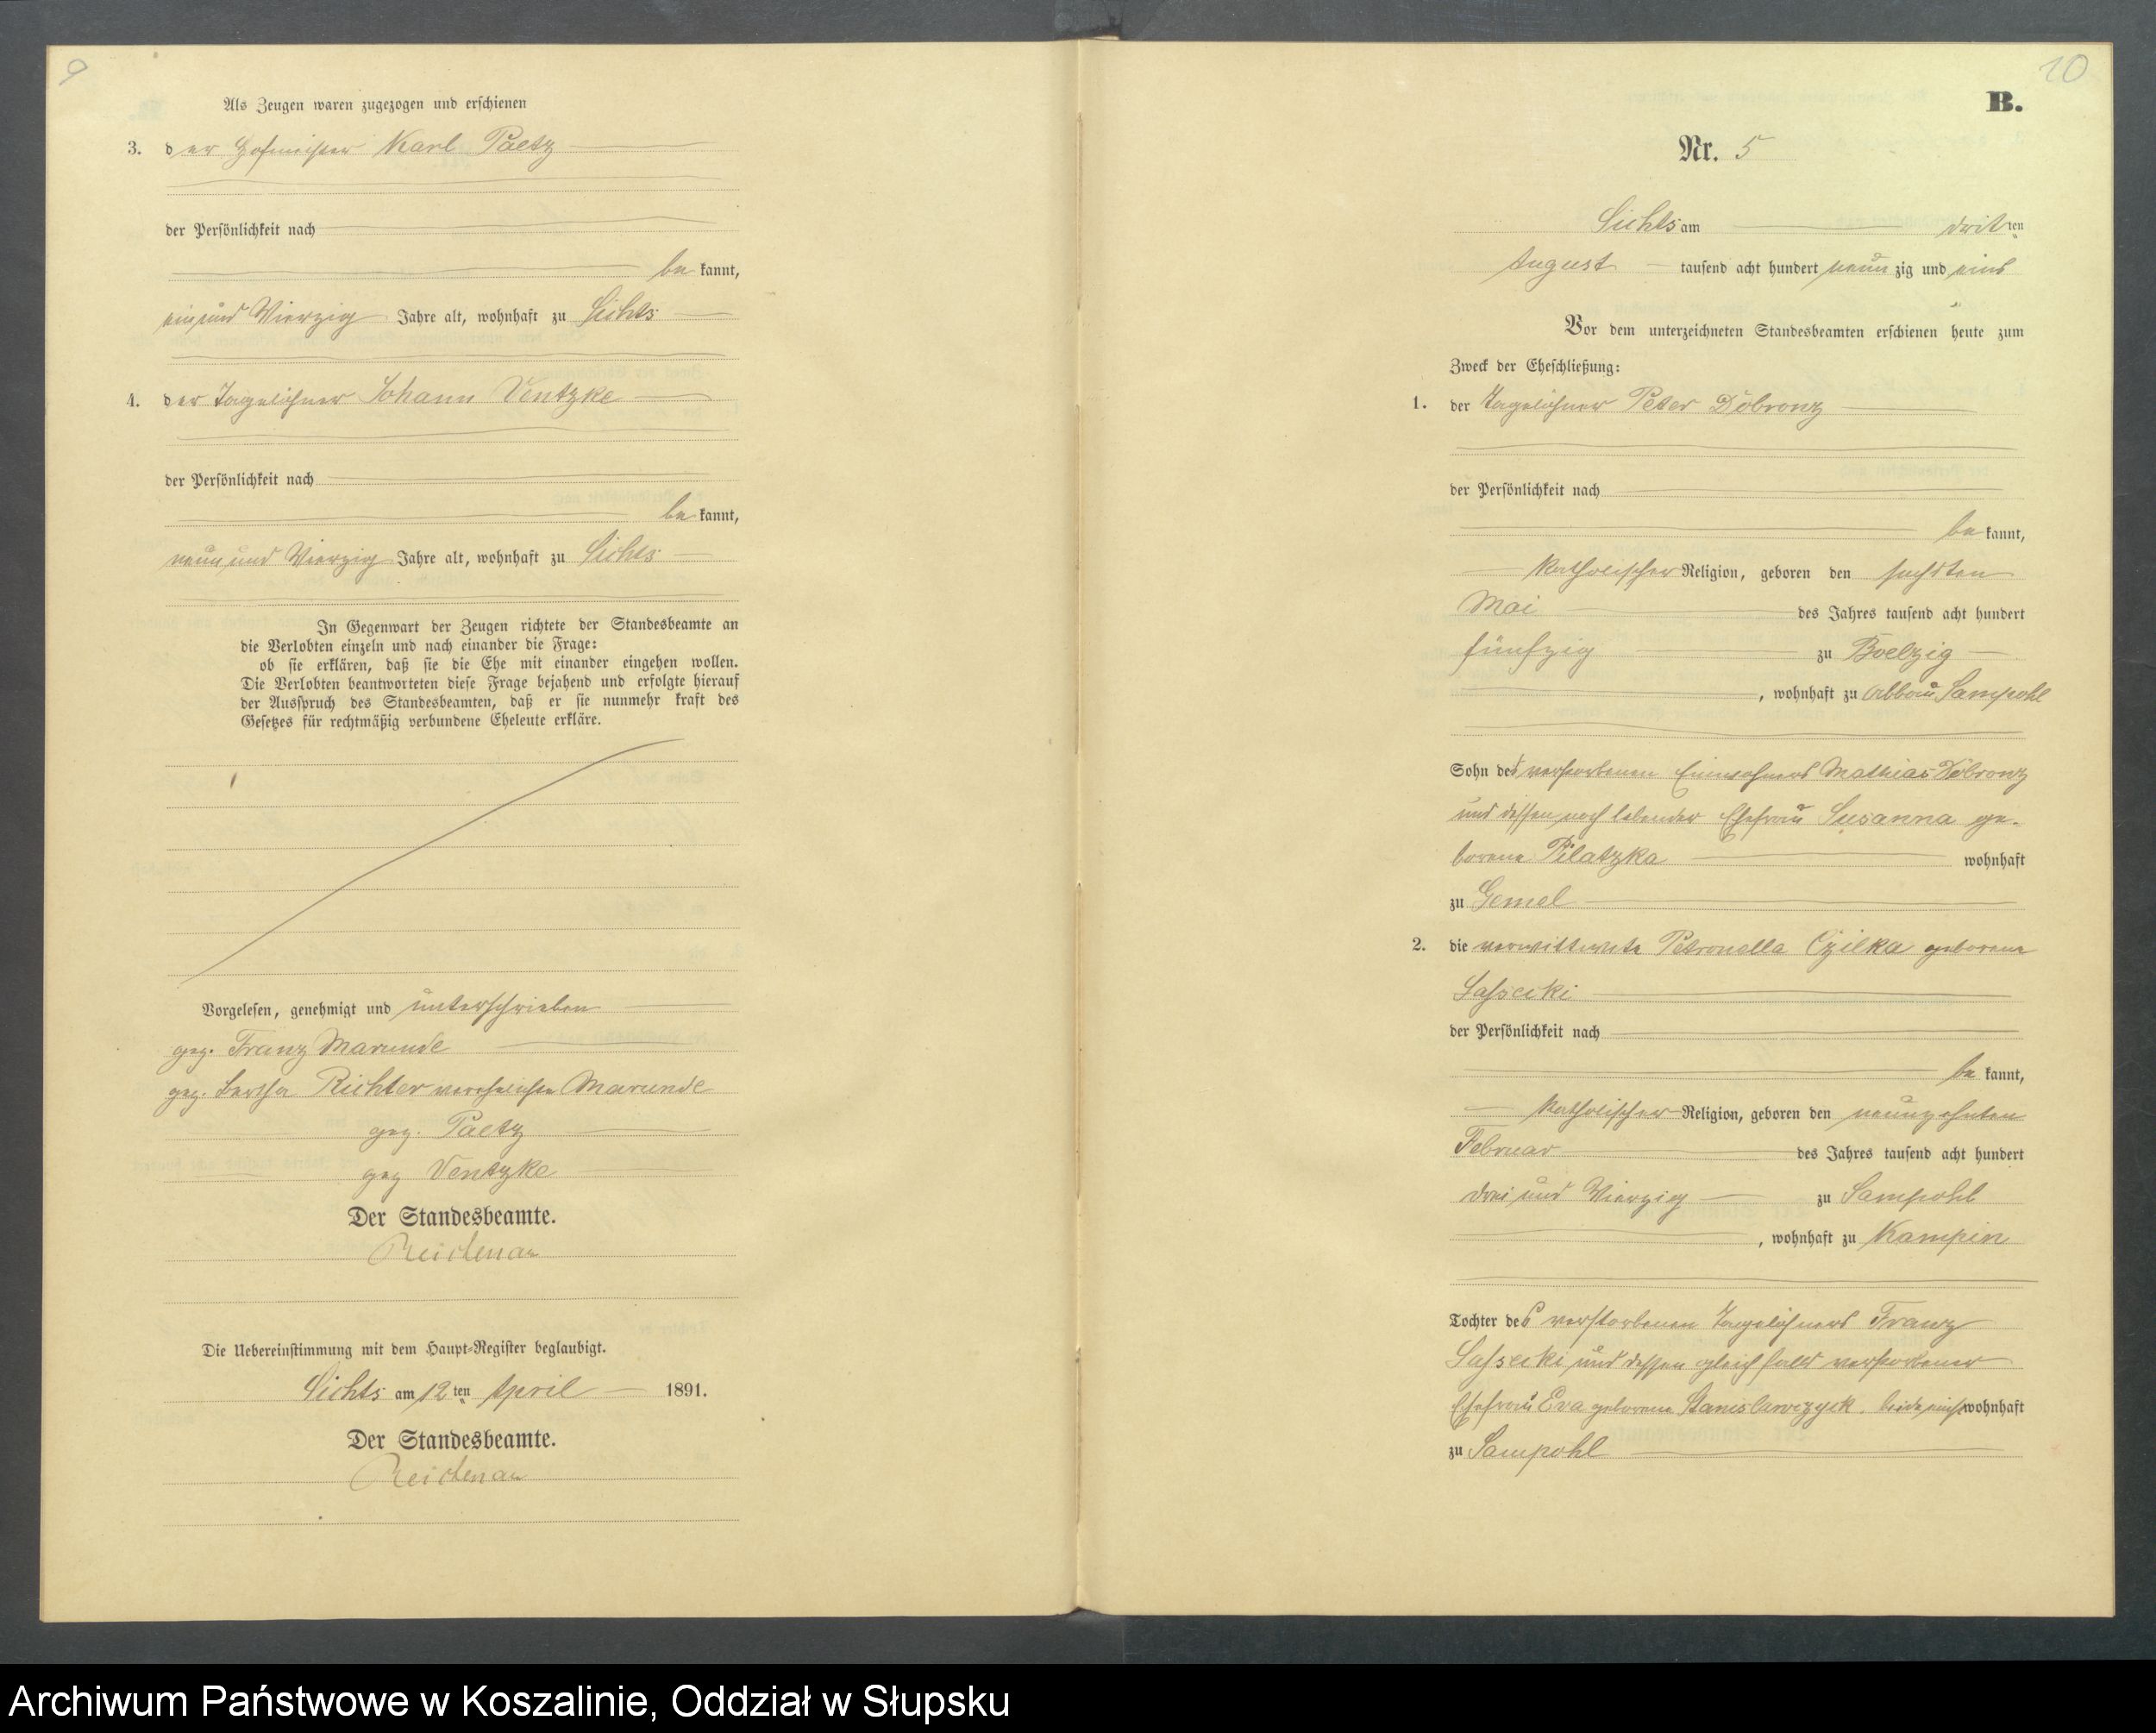 9
Als Zeugen waren zugezogen und erschienen
3. der Hofmeister Karl Paetz
der Persönlichkeit nach
be kannt,
ein und Vierzig Jahre alt, wohnhaft zu Sichts
4. der Tagelöhner Johann Ventzke
der Persönlichkeit nach
be kannt,
neun und Vierzig Jahre alt, wohnhaft zu Sichts
In Gegenwart der Zeugen richtete der Standesbeamte an
die Verlobten einzeln und nach einander die Frage:
ob sie erklären, daß sie die Ehe mit einander eingehen wollen.
Die Verlobten beantworteten diese Frage bejahend und erfolgte hierauf
der Ausspruch des Standesbeamten, daß er sie nunmehr kraft des
Gesetzes für rechtmäßig verbundene Eheleute erkläre.
Vorgelesen, genehmigt und unterschrieben
gez. Franz Marunde
gez. Bertha Richter verehelichte Marunde
gez. Paetz
gez Ventzke
Der Standesbeamte.
Reichenau
Die Uebereinstimmung mit dem Haupt-Register beglaubigt.
Sichts am 12 ten April 1891.
Der Standesbeamte.
Reichenau
10
B.
Nr. 5
Sichts am drit ten
August tausend acht hundert neun zig und eins
Vor dem unterzeichneten Standesbeamten erschienen heute zum
Zweck der Eheschließung:
1. der Tagelöhner Peter Dobronz
der Persönlichkeit nach
be kannt,
katholischer Religion, geboren den sechsten
Mai des Jahres tausend acht hundert
fünfzig zu Boelzig
, wohnhaft zu Abbau Sampohl
Sohn des verstorbenen Einwohners Mathias Dobronz
und dessen noch lebender Ehefrau Susanna ge-
borene Pilatzka wohnhaft
zu Gemel
2. die verwittwete Petronella Czilka geborene
Sassecki
der Persönlichkeit nach
be kannt,
katholischer Religion, geboren den neunzehnten
Februar des Jahres tausend acht hundert
drei und Vierzig zu Sampohl
, wohnhaft zu Kampin
Tochter des verstorbenen Tagelöhners Franz
Sassecki und dessen gleichfalls verstorbener
Ehefrau Eva geborene Stanislawczyck. beide wohnhaft
zu Sampohl
Archiwum Państwowe w Koszalinie, Oddział w Słupsku